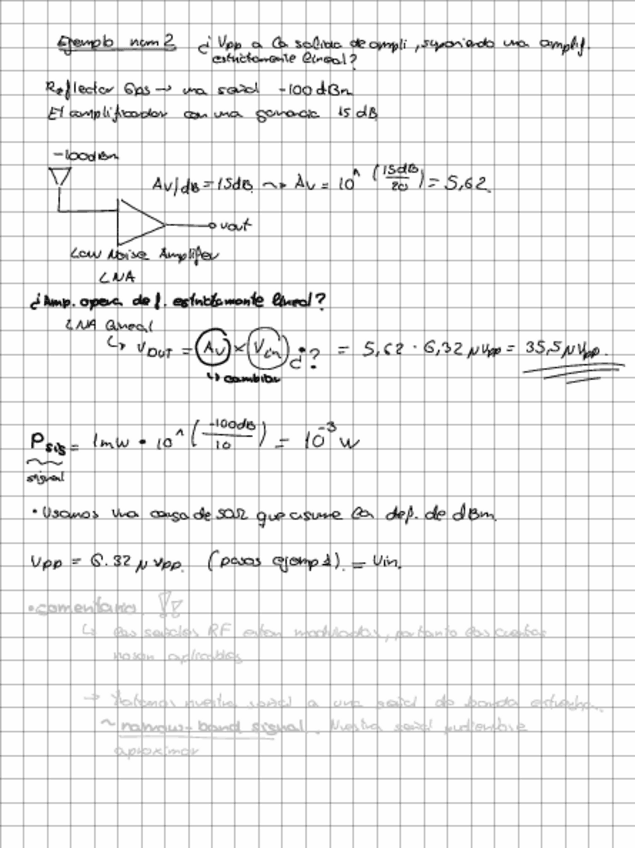 Ejemplo num 2 ¿Vpp a la salida de ampli, suponiendo una amplif.
estrictamente lineal?
Reflector Gps → una señal -100 dBm
El amplificador con una ganancia 15 dB
-100dBm
Av/dB = 15dB ⇝ Av = 10^(15dB/20) = 5,62
vout
Low Noise Amplifier
LNA
¿Amp. opera de f. estrictamente lineal?
LNA lineal
↳ VOUT = (Av) × (Vin) ¿? = 5,62 · 6,32 µVpp = 35,5 µVpp.
↳ cambiar
Psig = 1mW · 10^(-100dB/10) = 10^-3 W
signal
• Usamos una carga de 50Ω que asume la def. de dBm.
Vpp = 6.32 µVpp. (pasos ejemp 1) = Vin.
• comentario !!
↳ las señales RF estan moduladas, portanto las cuentas
noson aplicables
→ nuestra señal a una señal de banda estrecha.
~ narrow-band signal. Nuestra señal
aproximar